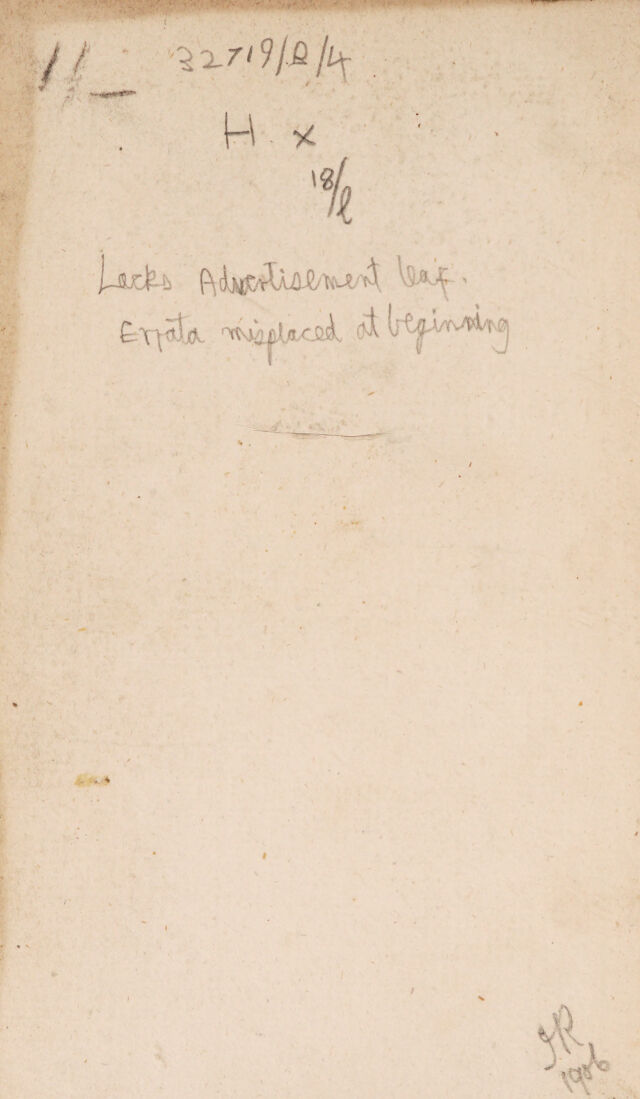 11/- 32719/B/4
H x
18/l
Lacks Advertisement leaf.
Errata misplaced at beginning
JR
1906